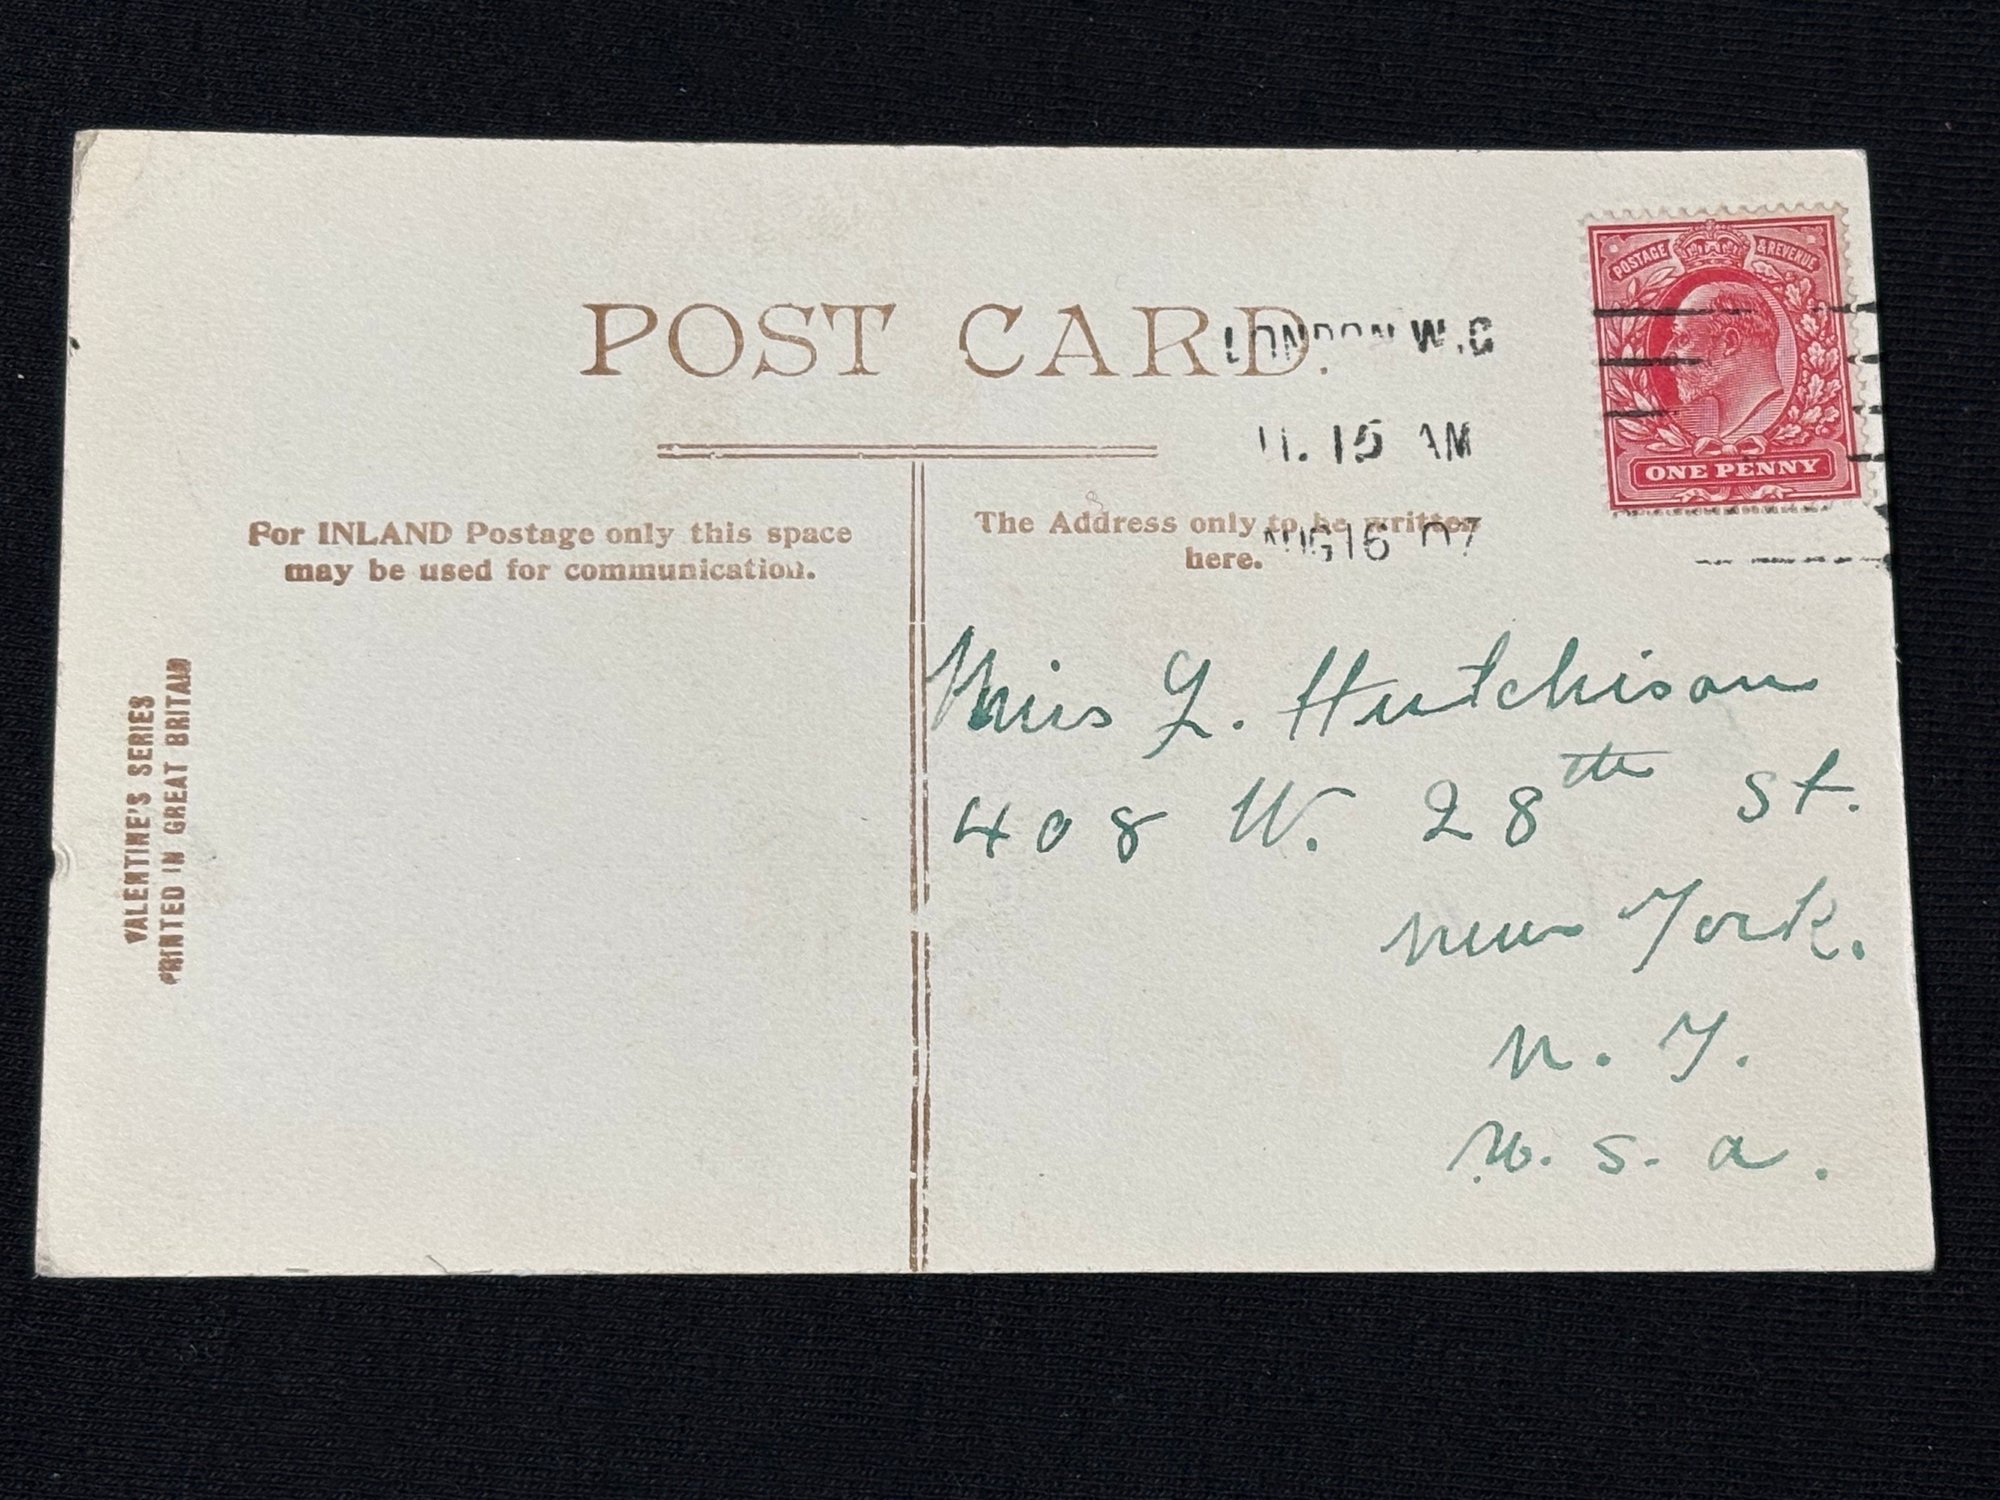 POSTAGE & REVENUE
POST CARD.
LONDON.W.C
11.15 AM
AUG 16 07
ONE PENNY
For INLAND Postage only this space
may be used for communication.
The Address only to be written
here.
VALENTINE'S SERIES
PRINTED IN GREAT BRITAIN
Miss L. Hutchison
408 W. 28th St.
New York.
N. Y.
U. S. A.